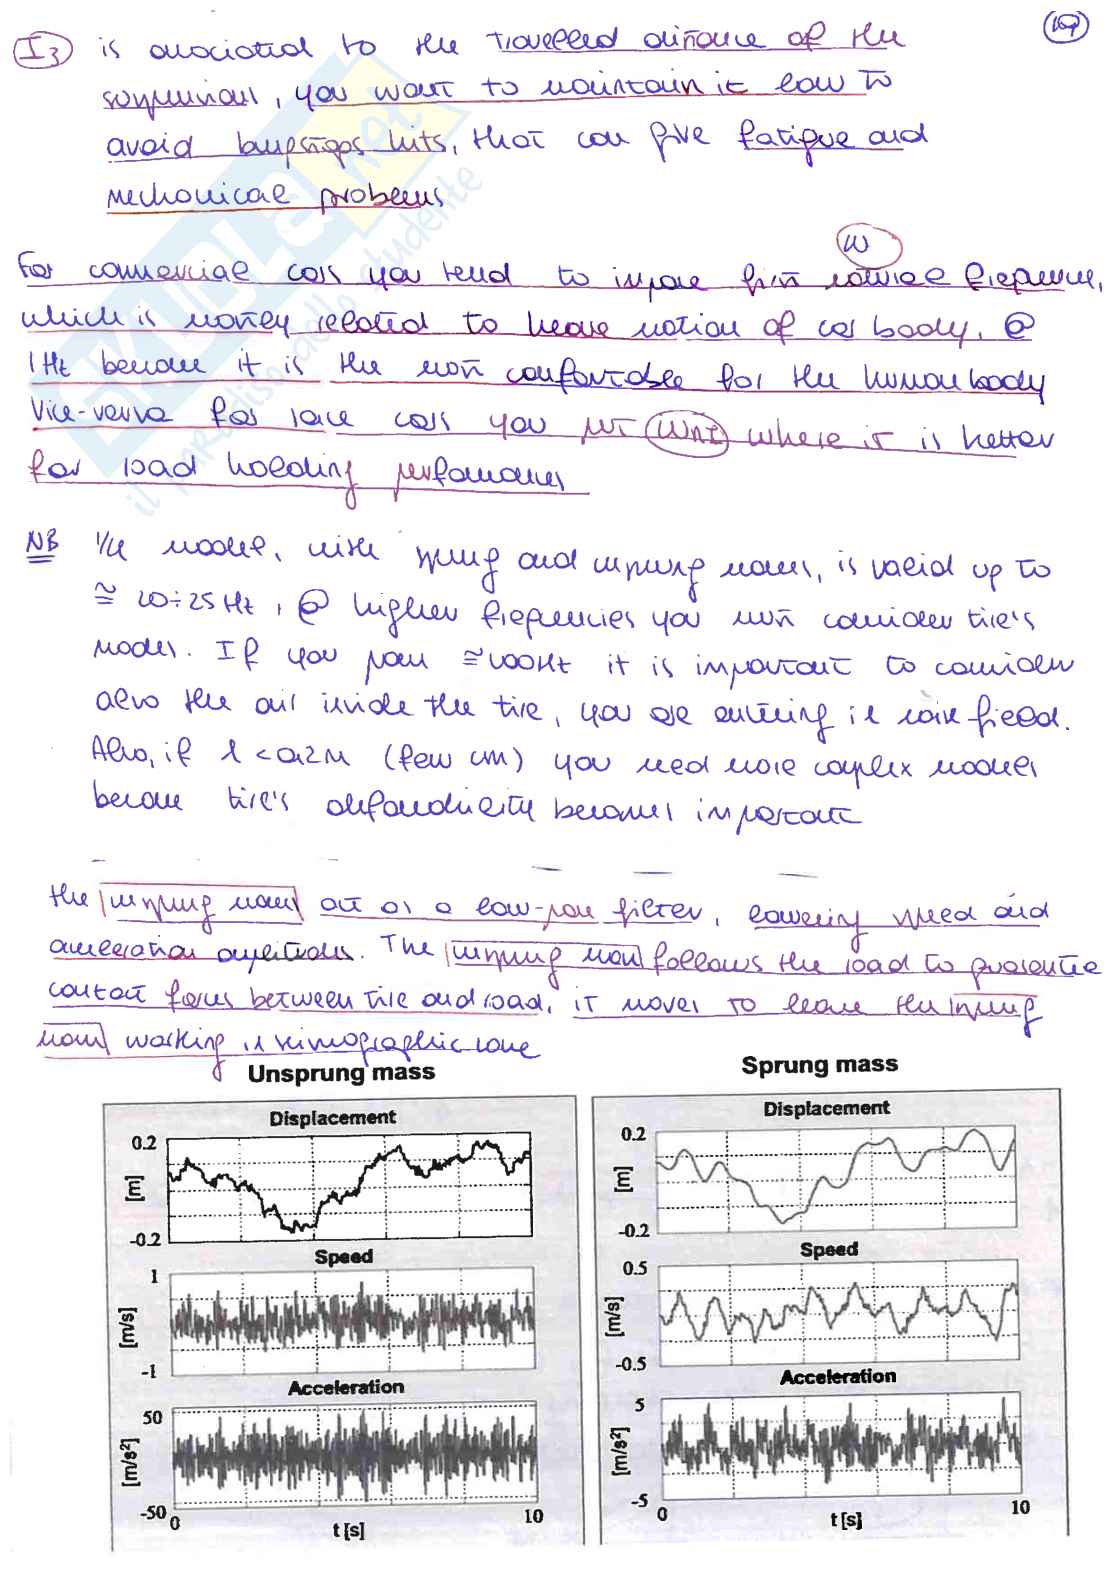 I3 is associated to the travelled distance of the
suspension, you want to maintain it low to
avoid bumpstops hits, that can give fatigue and
mechanical problems
W
For commercial cars you tend to impose first natural frequency,
which is mostly related to heave motion of car body, @
1Hz because it is the most comfortable for the human body
Vice-versa for race cars you put Wn1 where it is better
for road holding performances
NB 1/4 model, with sprung and unsprung masses, is valid up to
≅ 20÷25Hz, @ higher frequencies you must consider tire's
modes. If you pass ≅ 100Hz it is important to consider
also the air inside the tire, you are entering in noise field.
Also, if λ < 0,2m (few cm) you need more complex models
because tire's deformability becomes important
the unsprung mass act as a low-pass filter, lowering speed and
acceleration amplitudes. The unsprung mass follows the road to guarantee
contact forces between tire and road, it moves to leave the sprung
mass working in seismographic zone
Unsprung mass
Sprung mass
Displacement
0.2
[m]
-0.2
Speed
1
[m/s]
-1
Acceleration
50
[m/s²]
-50
0
10
t [s]
Displacement
0.2
[m]
-0.2
Speed
0.5
[m/s]
-0.5
Acceleration
5
[m/s²]
-5
0
10
t [s]
il paradiso dello studente